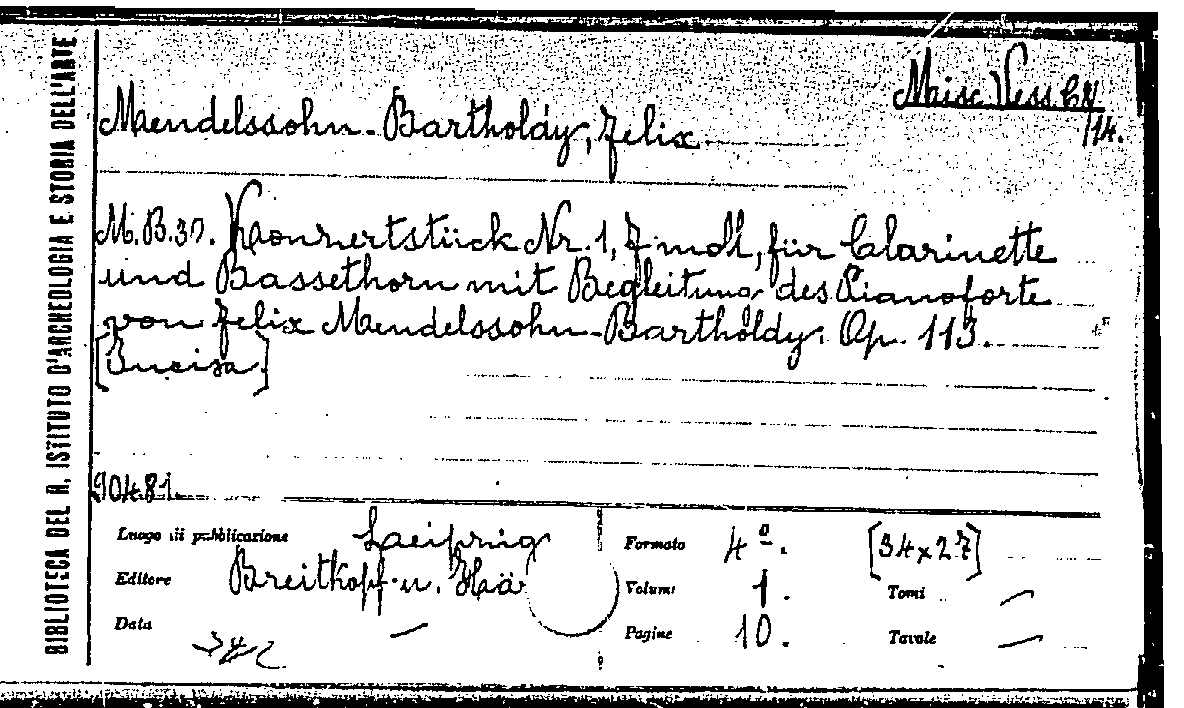 BIBLIOTECA DEL R. ISTITUTO D'ARCHEOLOGIA E STORIA DELL'ARTE
Misc. Vess. CN
/14.
Mendelssohn-Bartholdy, Felix
M.B.37. Konzertstück Nr. 1, F moll, für Clarinette
und Bassethorn mit Begleitung des Pianoforte
von Felix Mendelssohn-Bartholdy. Op. 113.
[Incisa]
90481
Luogo di pubblicazione Leipzig
Editore Breitkopf u. Hä
Data –
Formato 4º. [34x27]
Volumi 1. Tomi –
Pagine 10. Tavole –